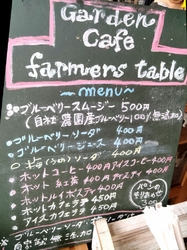 Garden
Cafe
farmers table
~menu~
ブルーベリースムージー 500円
(自社農園産ブルーベリー100%無添加)
ブルーベリーソーダ 400円
ブルーベリージュース 400円
梅(うめ)ソーダ 400円
ホットコーヒー 400円 アイスコーヒー 400円
ホット紅茶 400円 アイスティ
ホットルイボスティ 400円
ホットカフェラテ 450円
アイスカフェラテ 450円